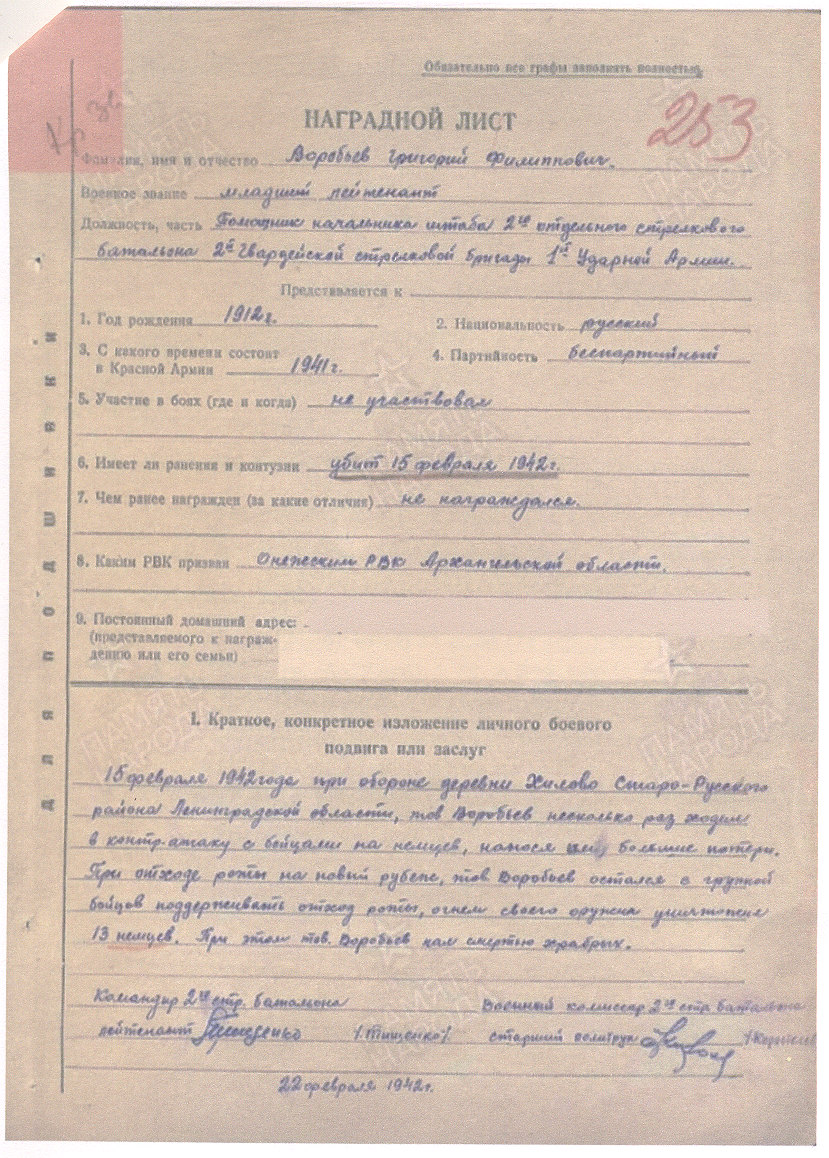 Обязательно все графы заполнять полностью.
Кр зв
253
НАГРАДНОЙ ЛИСТ
Фамилия, имя и отчество Воробьев Григорий Филиппович.
Военное звание младший лейтенант
Должность, часть Помощник начальника штаба 2го отдельного стрелкового
батальона 2й Гвардейской стрелковой бригады 1й Ударной Армии.
Представляется к
1. Год рождения 1912г. 2. Национальность русский
3. С какого времени состоит
в Красной Армии 1941г. 4. Партийность беспартийный
5. Участие в боях (где и когда) не участвовал
6. Имеет ли ранения и контузии убит 15 февраля 1942г.
7. Чем ранее награжден (за какие отличия) не награждался.
8. Каким РВК призван Онежским РВК Архангельской области.
9. Постоянный домашний адрес:
(представляемого к награж-
дению или его семьи)
для подшивки
1. Краткое, конкретное изложение личного боевого
подвига или заслуг
15 февраля 1942 года при обороне деревни Хилово Старо-Русского
района Ленинградской области, тов Воробьев несколько раз ходил
в контр-атаку с бойцами на немцев, нанося им большие потери.
При отходе роты на новый рубеж, тов Воробьев остался с группой
бойцов поддерживать отход роты, огнем своего оружия уничтожил
13 немцев. При этом тов. Воробьев пал смертью храбрых.
Командир 2го стр. батальона Военный комиссар 2го стр. батальона
лейтенант Тищенко /Тищенко/ старший политрук
22 февраля 1942г.
ПАМЯТЬ НАРОДА